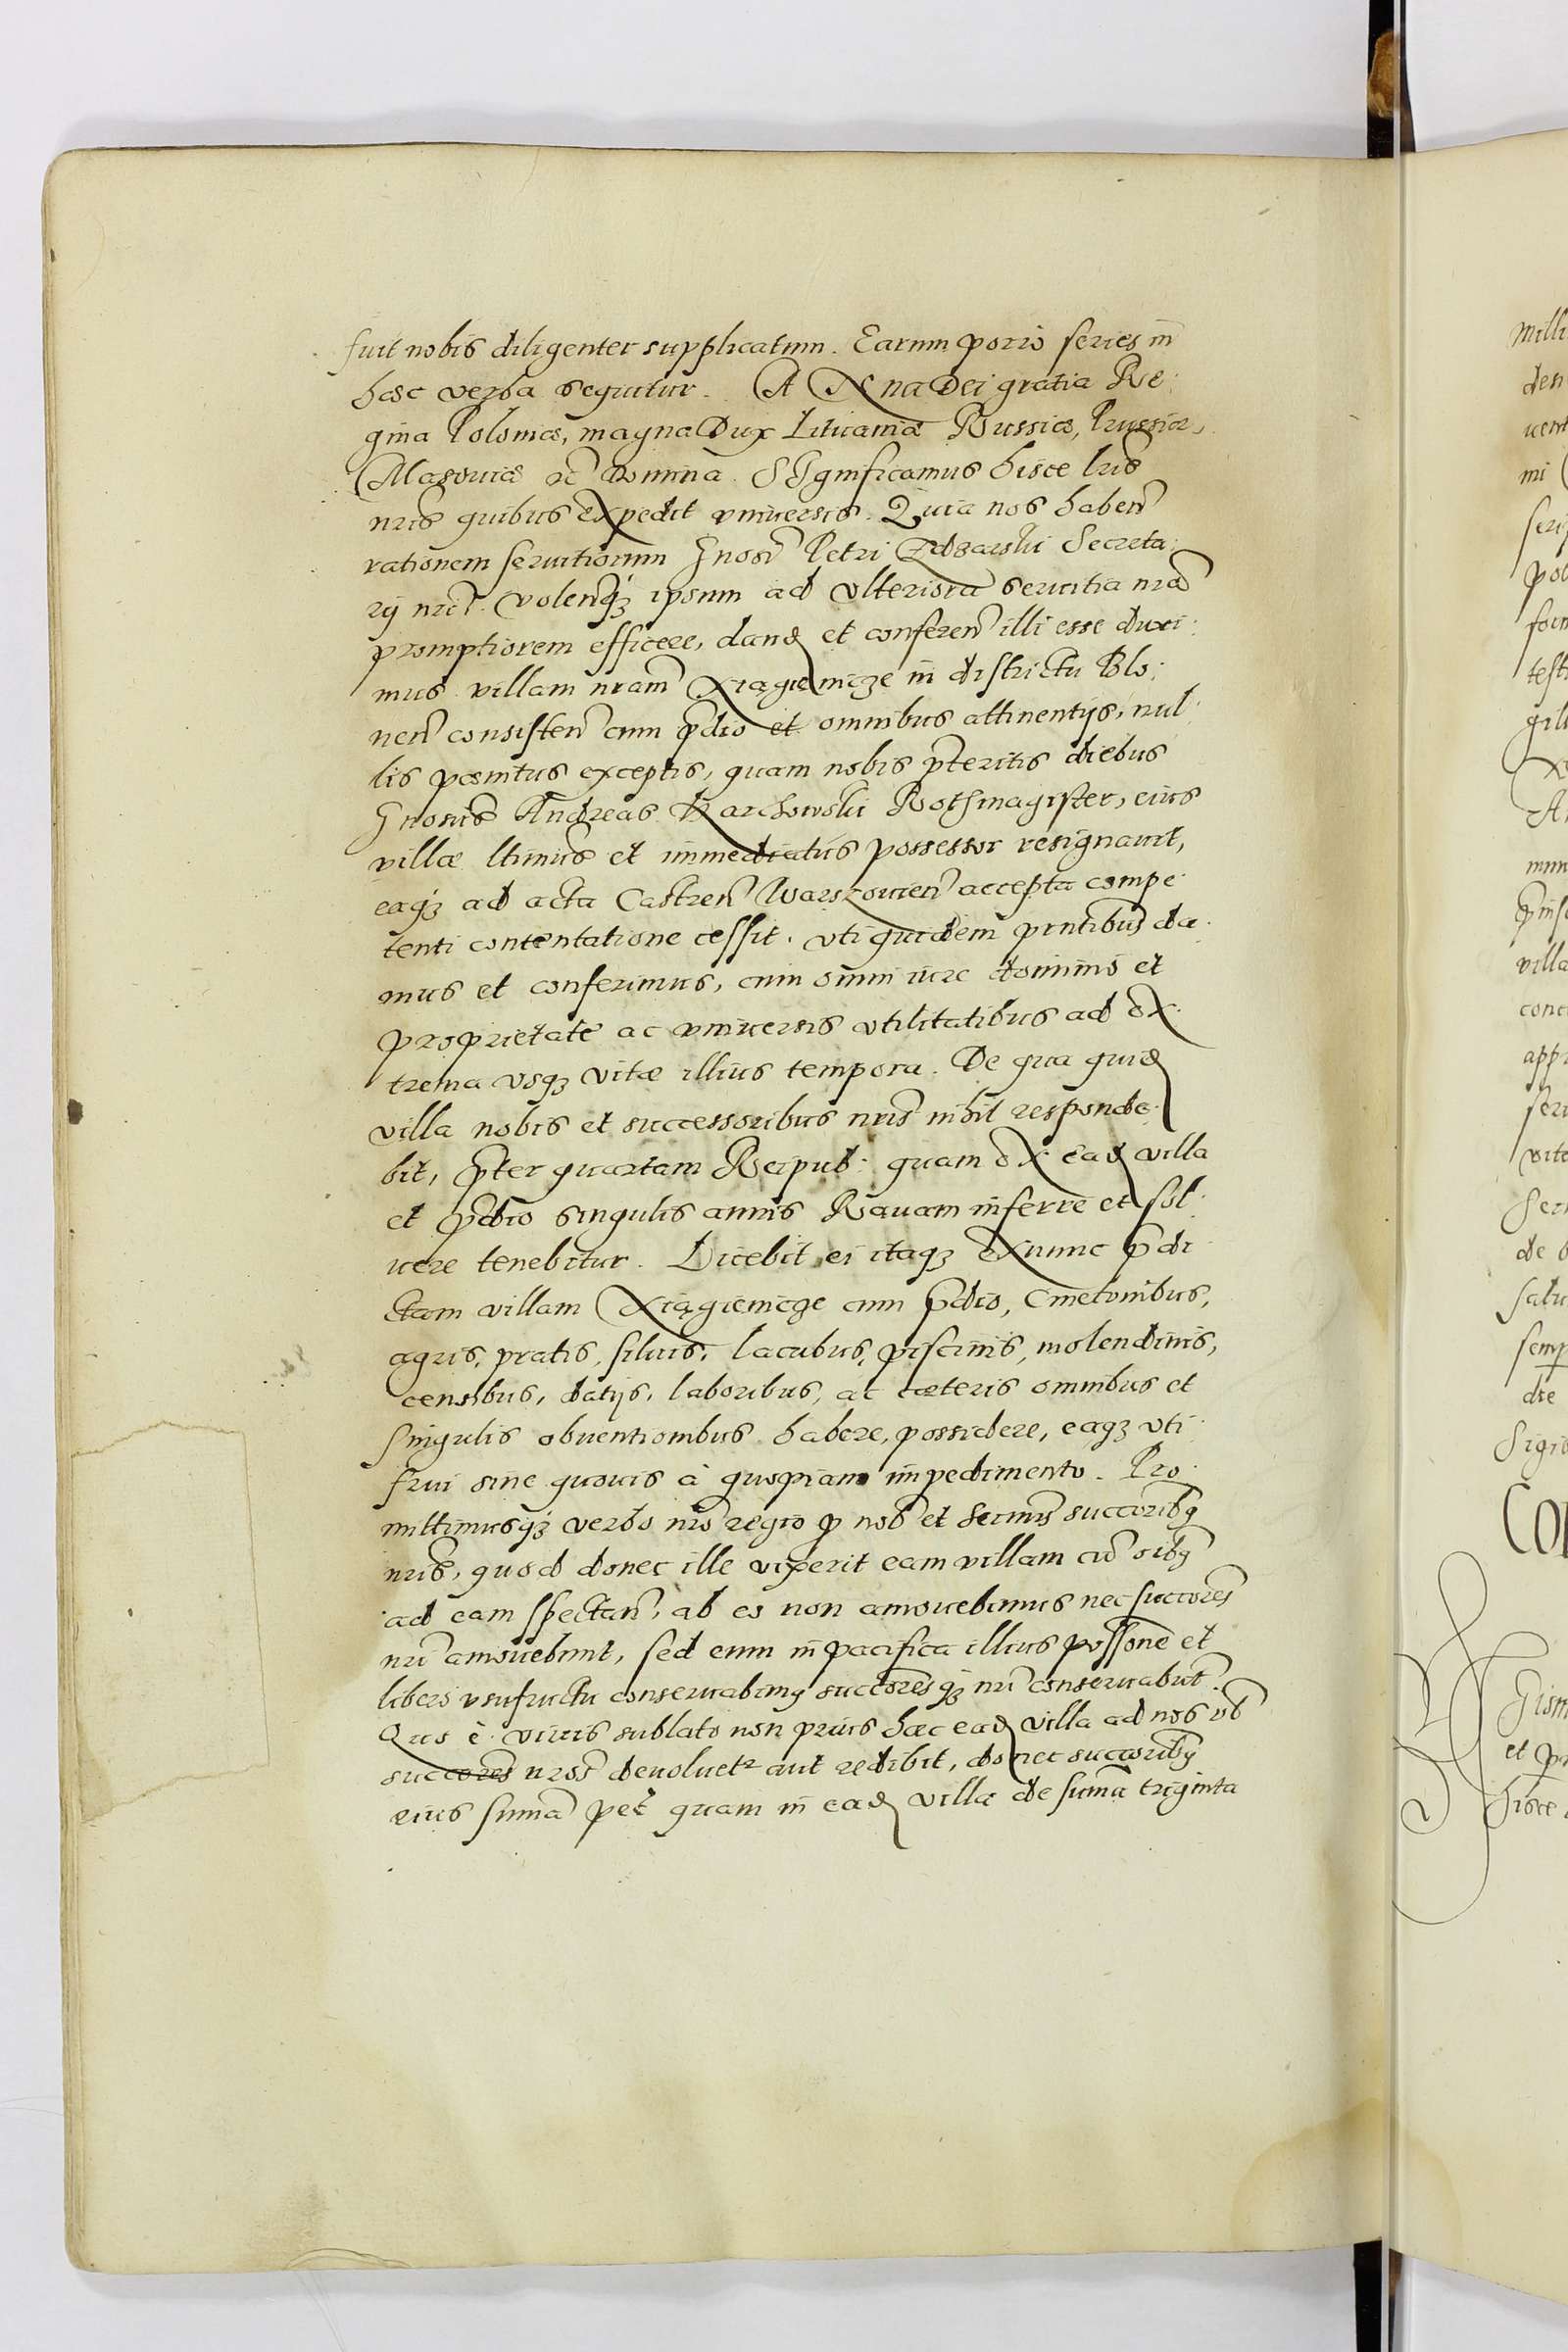 fuit nobis diligenter supplicatum. Earum porrò series in
hæc verba sequitur. ANna Dei gratia Re:
gina Poloniæ, magna Dux Lituaniæ Russiæ, Prussiæ,
Masouiæ ac̃ domina. SIgnificamus hisce lr̃is
nr̃is quibus expedit vniuersis. Quia nos haben̄
rationem seruitiorum Gnosi Petri Secreta:
rij nr̃i. volenq̃ꝫ ipsum ad vlteriora seruitia nr̃a
promptiorem efficere, dand et conferen̄ illi esse duxi:
mus villam nr̃am Xiągienicze in districtu Blo:
nen̄ consisten̄ cum p̃dio et omnibus attinentijs, nul:
lis pœnitus exceptis, quam nobis p̃teritis diebus
Gnosus Andreas Rothmagister, eius
villæ ltimus et immediatus possessor resignauit,
eaqꝫ ad acta Castren̄ Warszouien̄ accepta compe:
tenti contentatione cessit. vti quidem pr̃ntibus da:
mus et conferimus, cum omni iure dominio et
proprietate ac vniuersis vtilitatibus ad ex:
trema vsqꝫ vitæ illius tempora. De qua quid
villa nobis et successoribus nr̃is nihil responde:
bit, p̃ter quartam Reipub: quam ex ead villa
et p̃dio singulis annis Rauam inferre et sol:
uere tenebitur. Licebit ei itaqꝫ exnunc p̃di:
ctam villam Xiągienicze cum p̃dio, Cmetonibus,
agris, pratis, siluis, lacubus, piscinis, molendinis,
censibus, datijs, laboribus, ac cæteris omnibus et
singulis obuentionibus habere, possidere, eaqꝫ vti
frui sine quouis à quopiam impedimento. Pro:
mittimusqꝫ verbo nr̃o regio ꝓ nob̃ et Ser̃mis succoribꝫ
nr̃is, quod donec ille vixerit eam villam cū oibꝫ
ad eam spectan̄, ab eo non amouebimus nec succores
nr̃i amouebunt, sed eum in pacifica illius possone et
libero vsufructu conseruabimꝫ succoresqꝫ nr̃i conseruabūt.
Quo è viuis sublato non prius hæc ead villa ad nos vl̃
succores nr̃os deuoluetr aut redibit, donec succoribꝫ
eius summa pec̃ quam in ead villa de summa triginta